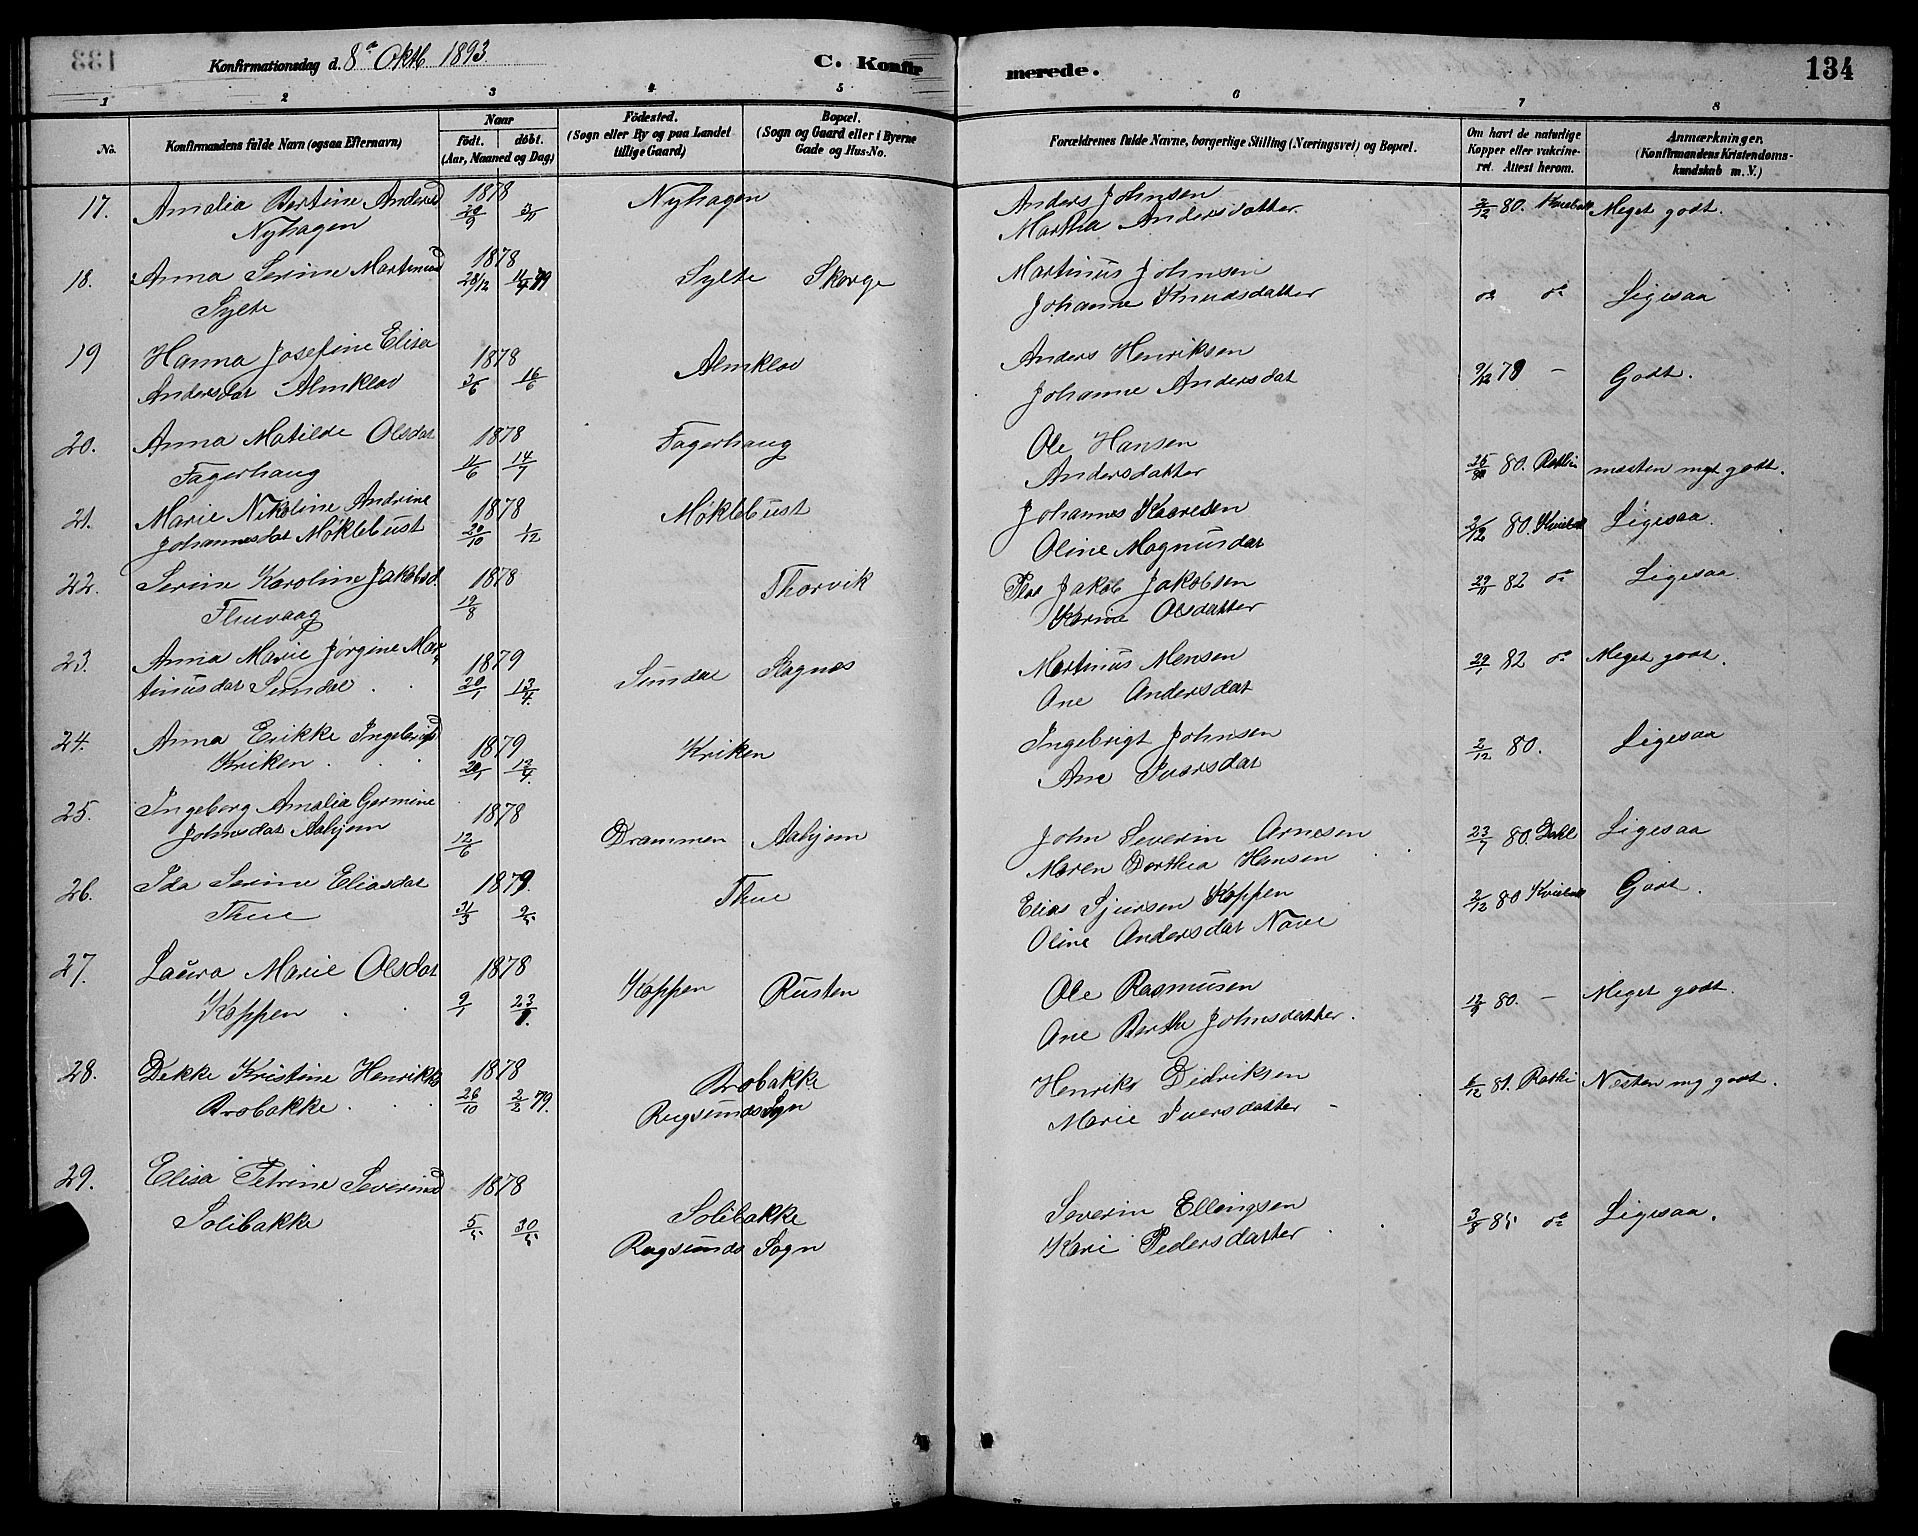 133
Konfirmationsdag d. 8de Oktb 1893
C. Konfir
merede.
134
1 2 3 4 5 6 7 8
No.
Konfirmandens fulde Navn (ogsaa Efternavn)
Naar
født. døbt.
(Aar, Maaned og Dag)
Fødested.
(Sogn eller By og paa Landet
tillige Gaard)
Bopæl.
(Sogn og Gaard eller i Byerne
Gade og Hus-No.
Forældrenes fulde Navne, borgerlige Stilling (Næringsvei) og Bopæl.
Om havt de naturlige
Kopper eller vakcine-
ret. Attest herom.
Anmærkninger.
(Konfirmandens Kristendoms-
kundskab m. V.)
17. Amalia Bertine Andersd 1878 Nyhagen Anders Johnsen 2/12 80. Meget godt.
Nyhagen 29/9 Martha Andersdatter
18. Anna Serine Martinusd 1878 Sylte Skorge Martinus Johnsen
Sylte 28/12 14/4 79 Johanne Knudsdatter do do Ligesaa
19 Hanna Josefine Elisa 1878 Almklov Anders Henriksen 9/12 79 - Godt.
Andersdat Almklov 3/6 16/6 Johanne Andersdat
20. Anna Matilde Olsdat 1878 Fagerhaug Ole Hansen
Fagerhaug 11/6 14/7 Andersdatter 80. næsten mgt godt.
21. Marie Nikoline Andrine 1878 Møklebust Johannes Kaaresen 2/12 80. Ligesaa.
Johannesdat Møklebust 20/10 1/12 Oline Magnusdat
22. Serine Karoline Jakobsd 1878 Thorvik Jakob Jakobsen 82 do Ligesaa.
19/8 Karine Olsdatter
23. Anna Marie Jørgine Mar- 1879 Sundal Martinus Monsen 29/1 82 do Meget godt.
tinusdat Sundal 20/1 13/4 Ane Andersdat
24. Anna Erikke Ingebrigd 1879 Kriken Ingebrigt Johnsen 2/12 80. Ligesaa
Kriken 20/1 13/4 Ane Iversdat
25. Ingeborg Amalia Germine 1878 Drammen Aahjem John Severin Arnesen 23/7 80. Dahl Ligesaa
Johnsdat Aahjem 12/6 Maren Dorthea Hansen
26. Ida Serine Eliasdat 1879. Thue Elias Sjursen Koppen 2/12 80 Godt.
Thue 31/3 Oline Andersdat Nave
27. Laura Marie Olsdat 1878 Koppen Rusten Ole Rasmusen 80. - Meget godt.
Koppen 9/1 Ane Berthe Johnsdatter.
28. Dekke Kristine Henriksd 1878 Brobakke Henrik Didriksen 6/12 81. Næsten mg godt.
Brobakke 26/10 2/2 79. Rugsunds Sogn Marie Iversdatter
29. Elisa Petrine Severinsd 1878 Solibakke Severin Ellingsen 3/8 85 do Ligesaa.
Solibakke 5/5 30/5 Rugsunds Sogn Kari Pedersdatter